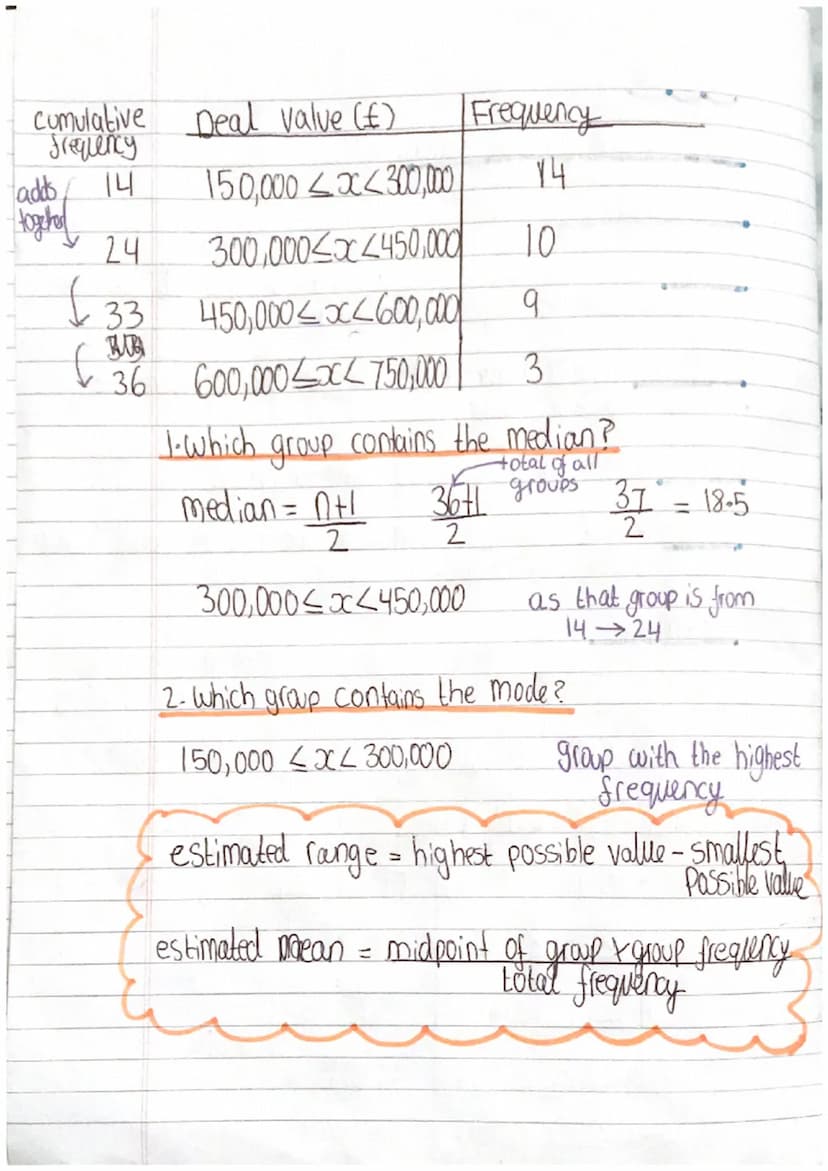 cumulative frequency | Deal value (£) | Frequency
adds together
14 | 150,000 ≤ x < 300,000 | 14
24 | 300,000 ≤ x < 450,000 | 10
33 | 450,000 ≤ x < 600,000 | 9
36 | 600,000 ≤ x < 750,000 | 3
1. Which group contains the median?
total of all
groups
median = n+1/2 36+1/2 37/2 = 18.5
300,000 ≤ x < 450,000 as that group is from
14 → 24
2. Which group contains the mode?
150,000 ≤ x < 300,000 group with the highest
frequency
estimated range = highest possible value - smallest
possible value
estimated mean = midpoint of group x group frequency
total frequency